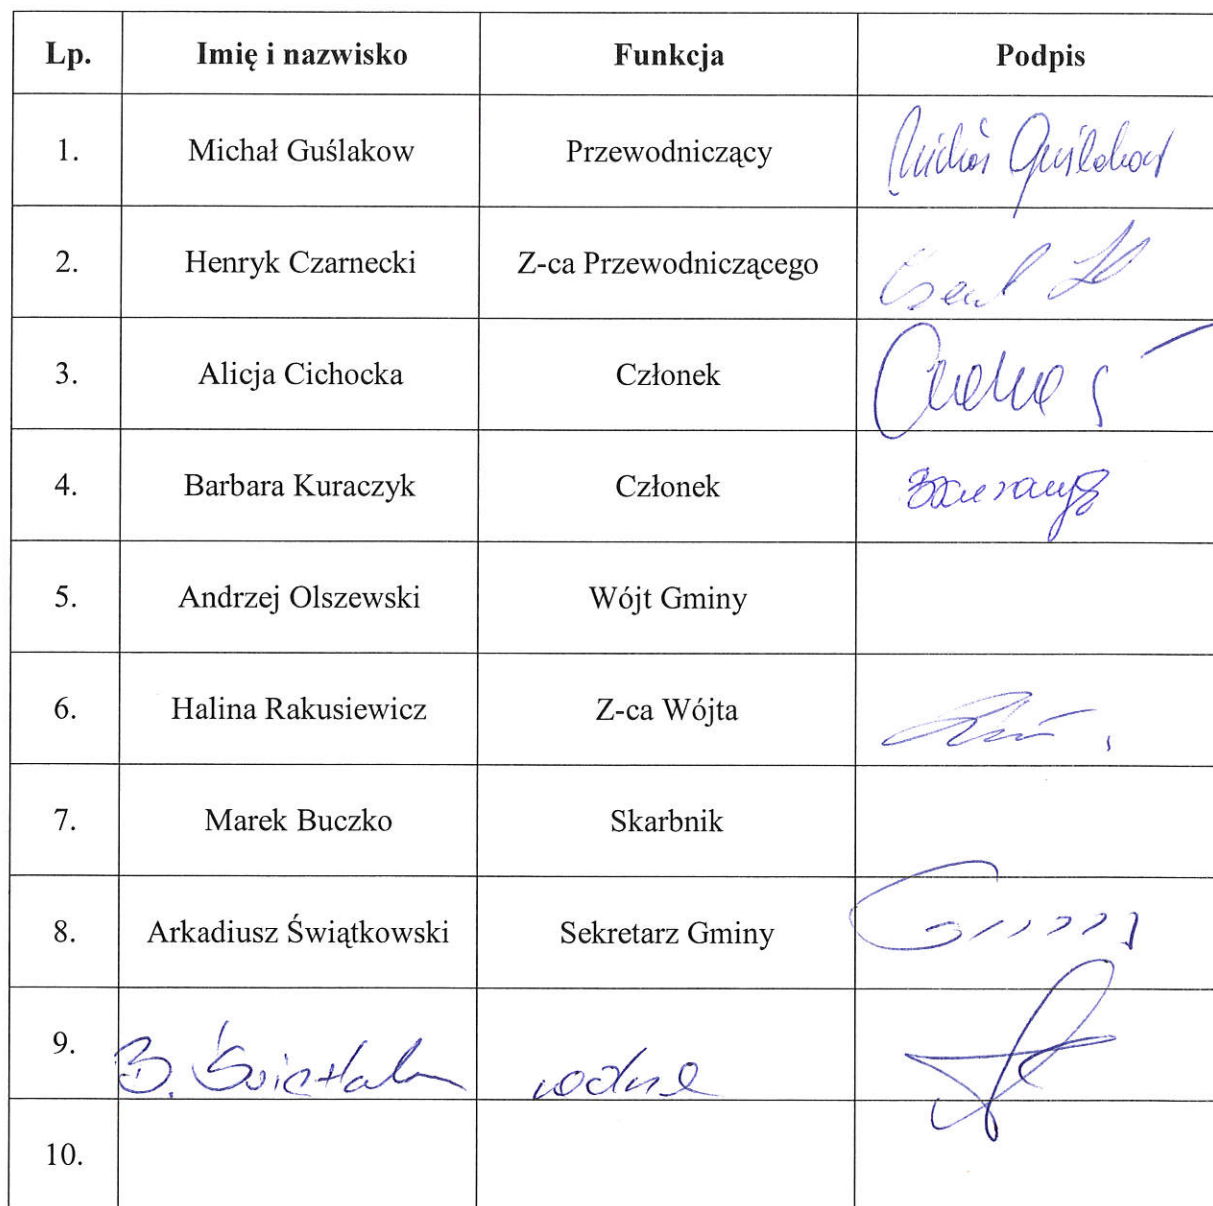 Lp. Imię i nazwisko Funkcja Podpis
1. Michał Guślakow Przewodniczący Michał Guślakow
2. Henryk Czarnecki Z-ca Przewodniczącego
3. Alicja Cichocka Członek
4. Barbara Kuraczyk Członek
5. Andrzej Olszewski Wójt Gminy
6. Halina Rakusiewicz Z-ca Wójta
7. Marek Buczko Skarbnik
8. Arkadiusz Świątkowski Sekretarz Gminy
9. B.
10.